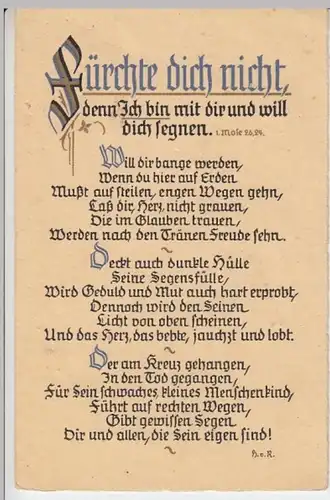 Fürchte dich nicht,
denn Ich bin mit dir und will
dich segnen. 1. Mose 26,24.
Will dir bange werden,
Wenn du hier auf Erden
Mußt auf steilen, engen Wegen gehn,
Laß dir, Herz, nicht grauen,
Die im Glauben trauen,
Werden nach den Tränen Freude sehn.
Deckt auch dunkle Hülle
Seine Segensfülle,
Wird Geduld und Mut auch hart erprobt,
Dennoch wird den Seinen
Licht von oben scheinen,
Und das Herz, das bebte, jauchzt und lobt.
Der am Kreuz gehangen,
In den Tod gegangen,
Für Sein schwaches, kleines Menschenkind,
Führt auf rechten Wegen,
Gibt gewissen Segen
Dir und allen, die Sein eigen sind!
H. v. R.